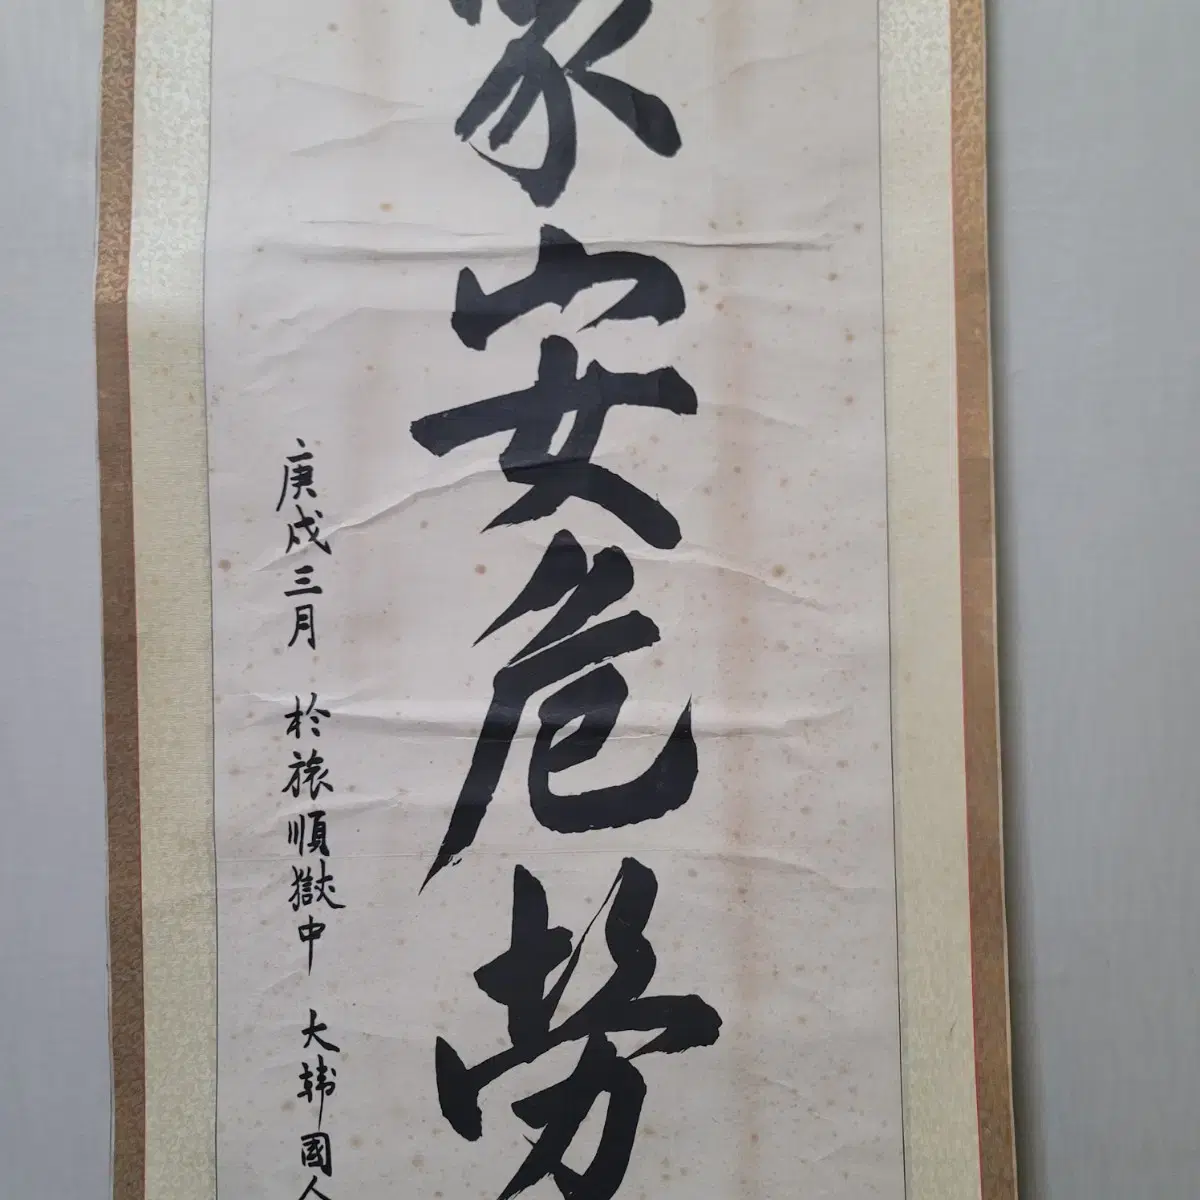 家安危勞
庚戌三月 於旅順獄中 大韓國人